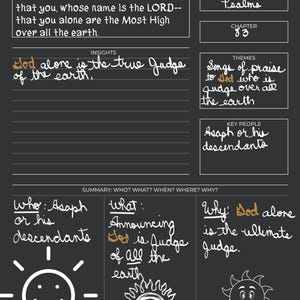 that you, whose name is the LORD--
that you alone are the Most High
over all the earth.
Psalms
CHAPTER
83
INSIGHTS
God alone is the true Judge
of the earth.
THEMES
Songs of praise
to God who is
judge over all
the earth
KEY PEOPLE
Asaph or his
descendants
SUMMARY: WHO? WHAT? WHEN? WHERE? WHY?
Who: Asaph
or his
descendants
What:
Announcing
God is Judge
of all the
earth
Why: God alone
is the ultimate
Judge.